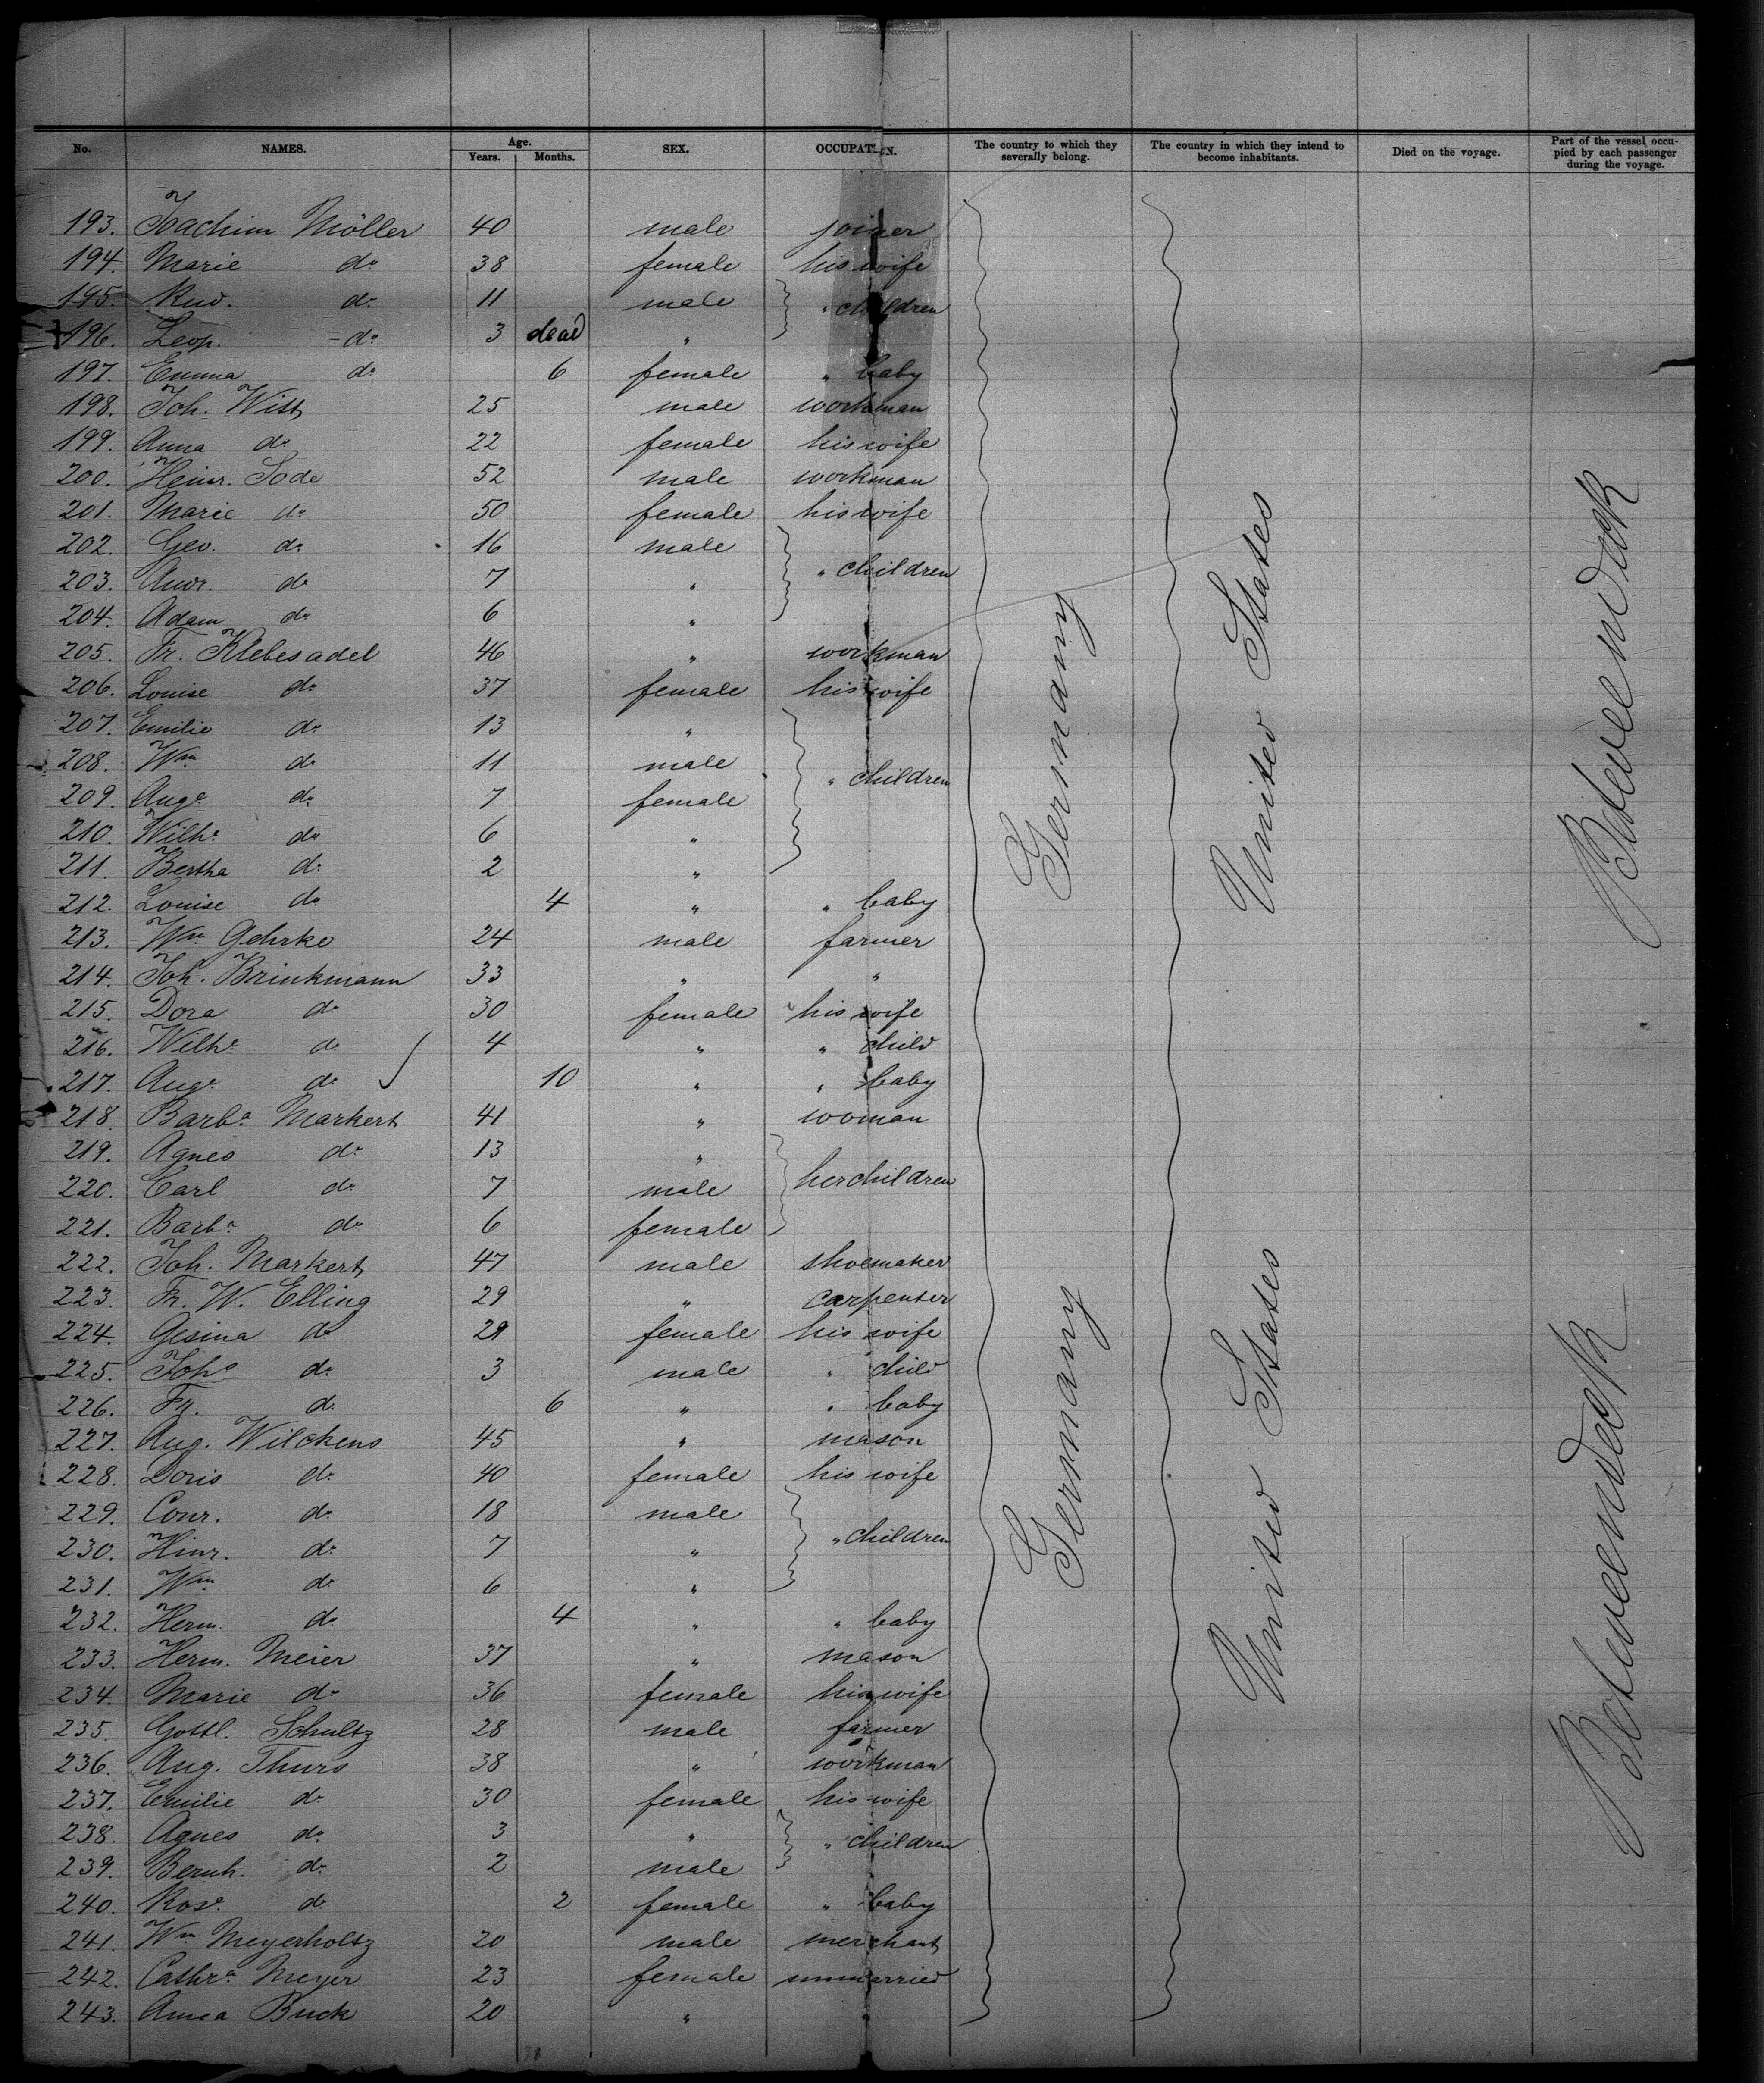 No. NAMES. Age. Years. Months. SEX. OCCUPATION. The country to which they severally belong. The country in which they intend to become inhabitants. Died on the voyage. Part of the vessel occupied by each passenger during the voyage.
193. Joachim Möller 40 male joiner
194. Marie do 38 female his wife
195. Rud. do 11 male " children
196. Leop. do 3 dead "
197. Emma do 6 female " baby
198. Joh. Witt 25 male workman
199. Anna do 22 female his wife
200. Heinr. Sode 52 male workman
201. Marie do 50 female his wife
202. Geo. do 16 male
203. Andr. do 7 " " children
204. Adam do 6 "
205. Fr. Klebesadel 46 " workman
206. Louise do 37 female his wife
207. Emilie do 13 "
208. Wm do 11 male " children
209. Auge do 7 female
210. Wilhe do 6 "
211. Bertha do 2 "
212. Louise do 4 " " baby
213. Wm Gehrke 24 male farmer
214. Joh. Brinkmann 33 " "
215. Dora do 30 female his wife
216. Wilhe do 4 " " child
217. Auge do 10 " " baby
218. Barba Markert 41 " woman
219. Agnes do 13 "
220. Carl do 7 male her children
221. Barba do 6 female
222. Joh. Markert 47 male shoemaker
223. Fr. W. Elling 29 " carpenter
224. Gesina do 29 female his wife
225. Johs do 3 male " child
226. Fr. do 6 " " baby
227. Aug. Wilckens 45 " mason
228. Doris do 40 female his wife
229. Conr. do 18 male
230. Hinr. do 7 " " children
231. Wm do 6 "
232. Herm. do 4 " " baby
233. Herm. Meier 37 " mason
234. Marie do 36 female his wife
235. Gottl. Schultz 28 male farmer
236. Aug. Thurs 38 " workman
237. Emilie do 30 female his wife
238. Agnes do 3 " " children
239. Bernh. do 2 male
240. Rose do 2 female " baby
241. Wm Meyerholtz 20 male merchant
242. Cathra Meyer 23 female unmarried
243. Anna Buck 20 " "
Germany
Germany
United States
United States
Betweendeck
Betweendeck